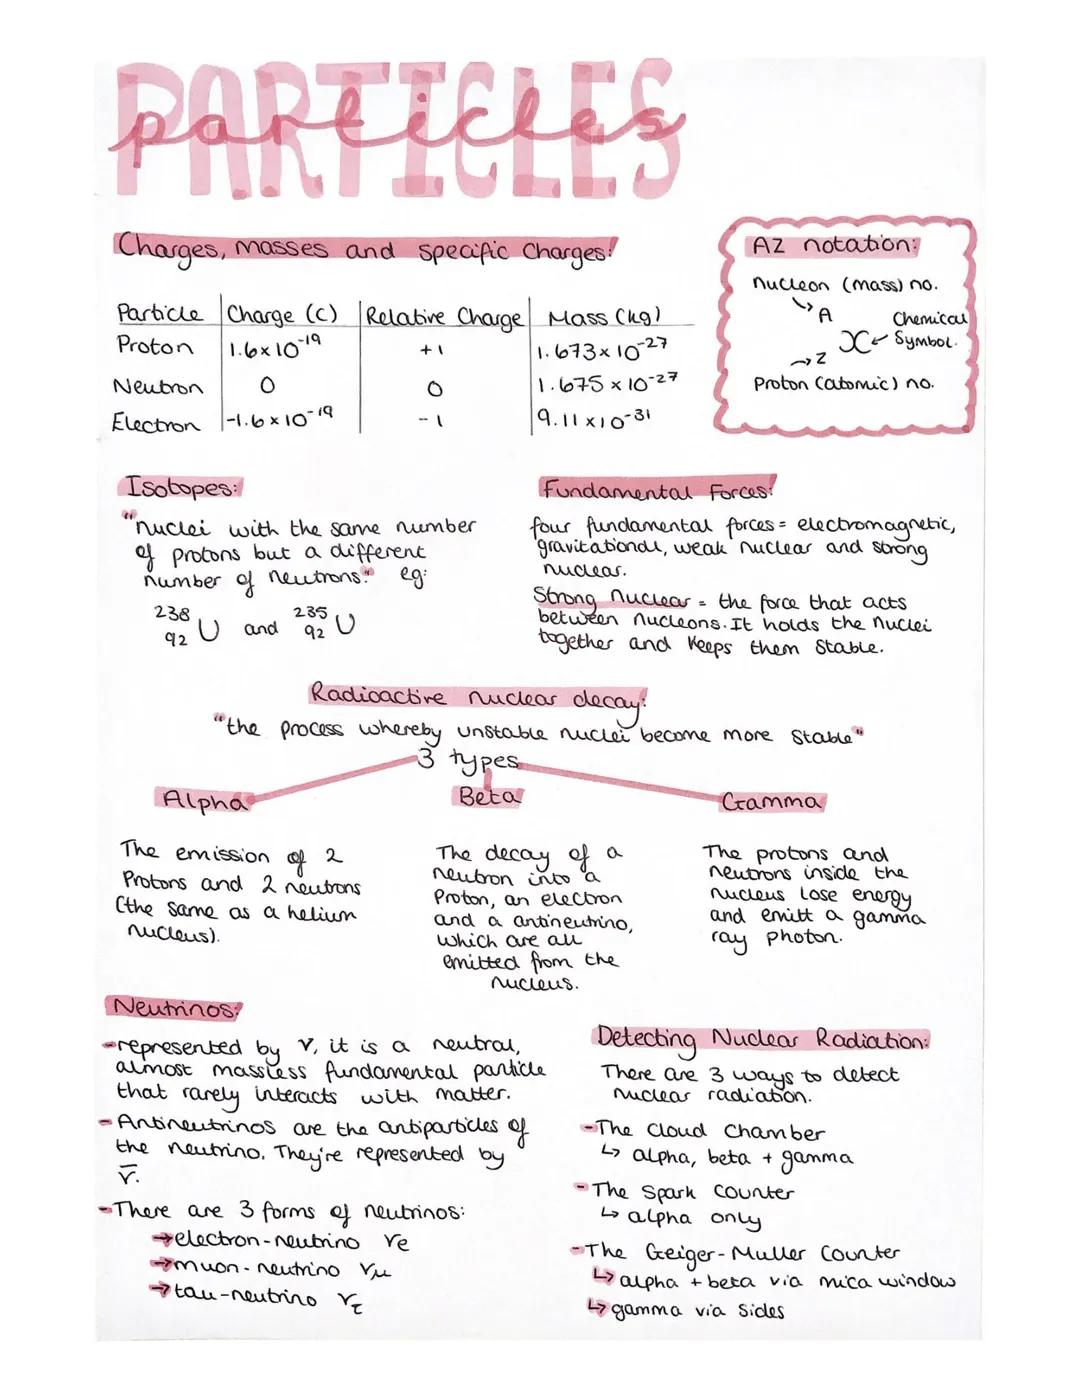 PARTICLES
particles
Charges, masses and specific Charges:
Particle Charge (C) Relative Charge Mass (kg)
Proton 1.6×10⁻¹⁹ +1 1.673×10⁻²⁷
Neutron 0 0 1.675×10⁻²⁷
Electron -1.6×10⁻¹⁹ -1 9.11×10⁻³¹
AZ notation:
nucleon (mass) no.
↳ A
X ← Chemical Symbol.
→ Z
Proton (atomic) no.
Isotopes:
"nuclei with the same number
of protons but a different
number of neutrons." eg:
²³⁸₉₂U and ²³⁵₉₂U
Fundamental Forces:
four fundamental forces = electromagnetic,
gravitational, weak nuclear and strong
nuclear.
Strong nuclear = the force that acts
between nucleons. It holds the nuclei
together and keeps them stable.
Radioactive nuclear decay:
"the process whereby unstable nuclei become more stable"
3 types
Alpha
The emission of 2
Protons and 2 neutrons
(the same as a helium
nucleus).
Beta
The decay of a
neutron into a
Proton, an electron
and a antineutrino,
which are all
emitted from the
nucleus.
Gamma
The protons and
neutrons inside the
nucleus lose energy
and emitt a gamma
ray photon.
Neutrinos:
-represented by ν, it is a neutral,
almost massless fundamental particle
that rarely interacts with matter.
-Antineutrinos are the antiparticles of
the neutrino. They're represented by
ν̅.
-There are 3 forms of neutrinos:
→electron-neutrino νe
→muon-neutrino νμ
→tau-neutrino ντ
Detecting Nuclear Radiation:
There are 3 ways to detect
nuclear radiation.
-The Cloud Chamber
↳ alpha, beta + gamma
-The Spark Counter
↳ alpha only
-The Geiger-Muller Counter
↳ alpha + beta via mica window
↳ gamma via sides